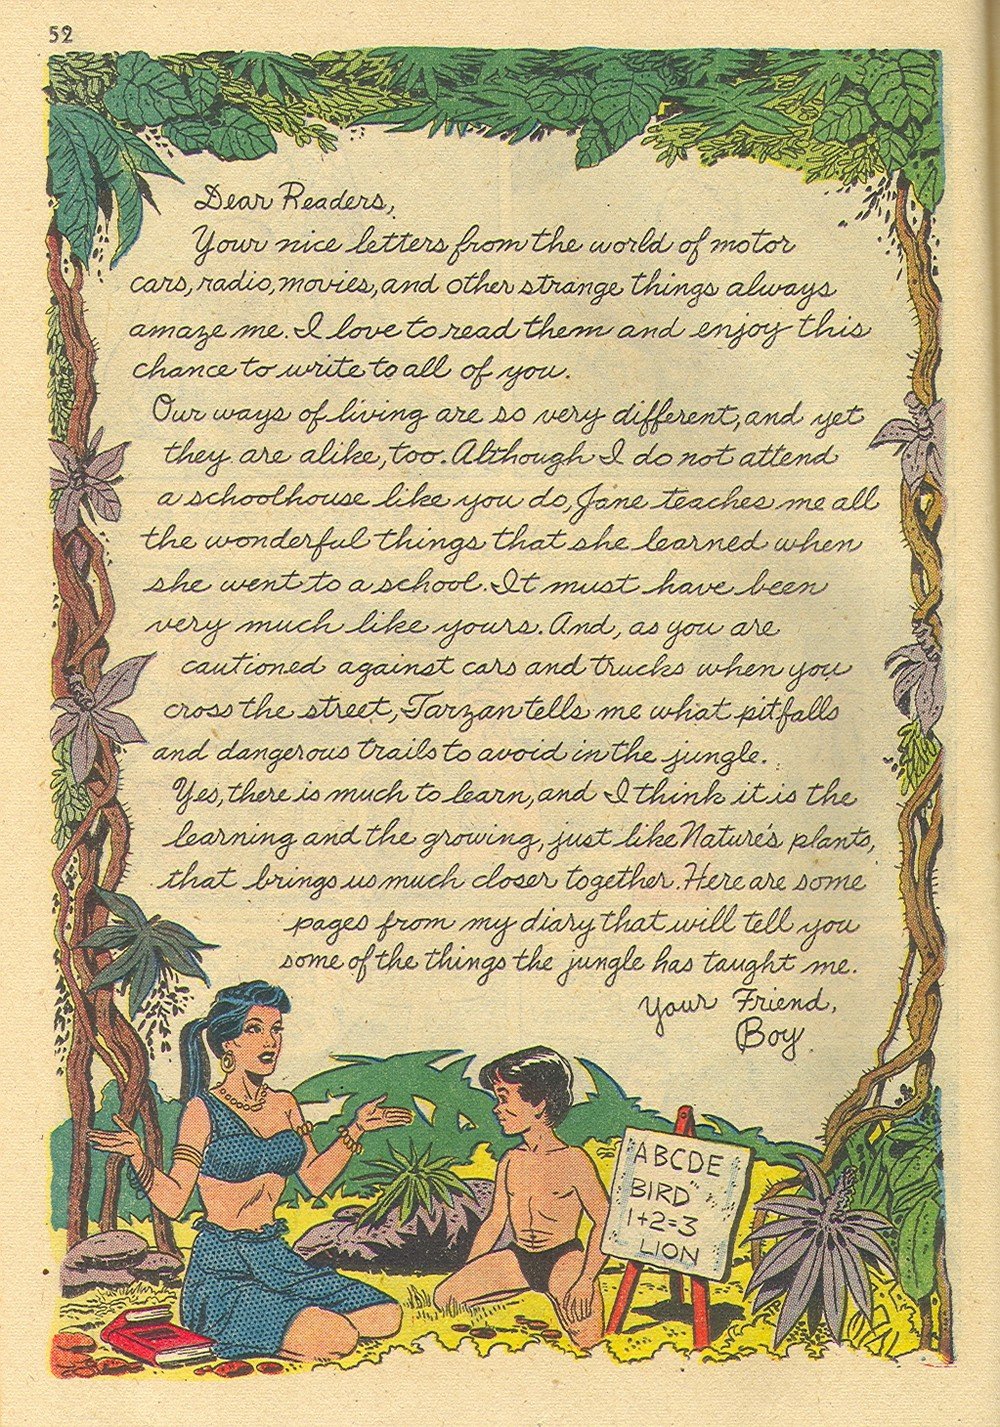 52
Dear Readers,
Your nice letters from the world of motor
cars, radio, movies, and other strange things always
amaze me. I love to read them and enjoy this
chance to write to all of you.
Our ways of living are so very different, and yet
they are alike, too. Although I do not attend
a schoolhouse like you do, Jane teaches me all
the wonderful things that she learned when
she went to a school. It must have been
very much like yours. And, as you are
cautioned against cars and trucks when you
cross the street, Tarzan tells me what pitfalls
and dangerous trails to avoid in the jungle.
Yes, there is much to learn, and I think it is the
learning and the growing, just like Nature's plants,
that brings us much closer together. Here are some
pages from my diary that will tell you
some of the things the jungle has taught me.
Your Friend,
Boy
ABCDE
BIRD
1+2=3
LION